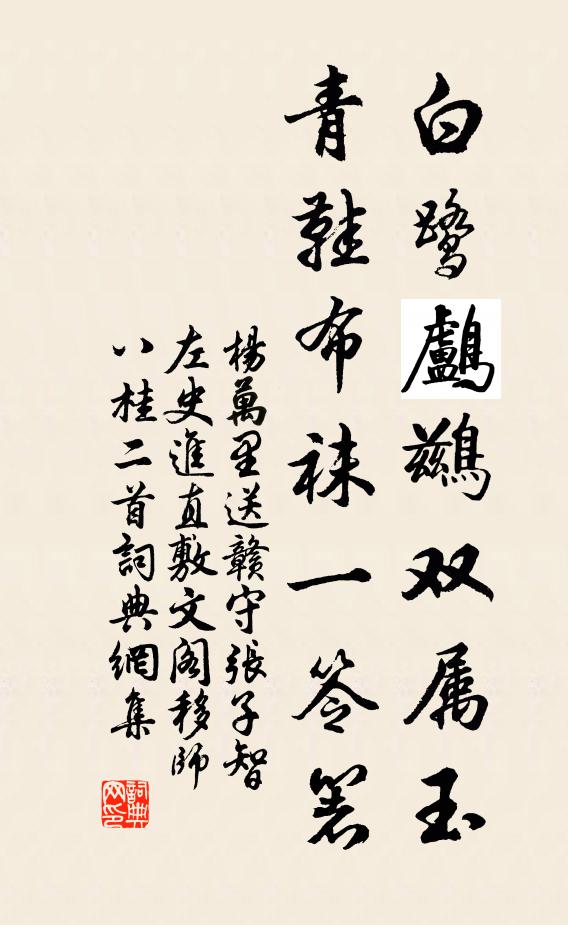 白鹭鸕鷀双属玉
青鞋布袜一笭箸
楊萬里送贛守張子智
左史進直敷文阁移師
八桂二首詞典網集
詞典网印